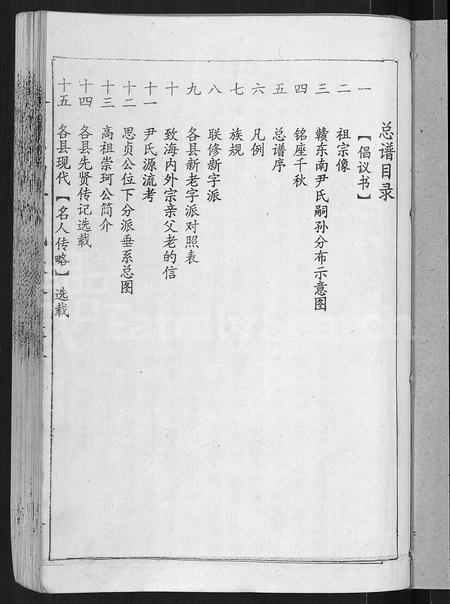 总谱目录
一 【倡议书】
二 祖宗像
三 赣东南尹氏嗣孙分布示意图
四 铭座千秋
五 总谱序
六 凡例
七 族规
八 联修新字派
九 各县新老字派对照表
十 致海内外宗亲父老的信
十一 尹氏源流考
十二 思贞公位下分派垂系总图
十三 高祖崇珂公简介
十四 各县先贤传记选载
十五 各县现代【名人传略】选载
FamilySearch